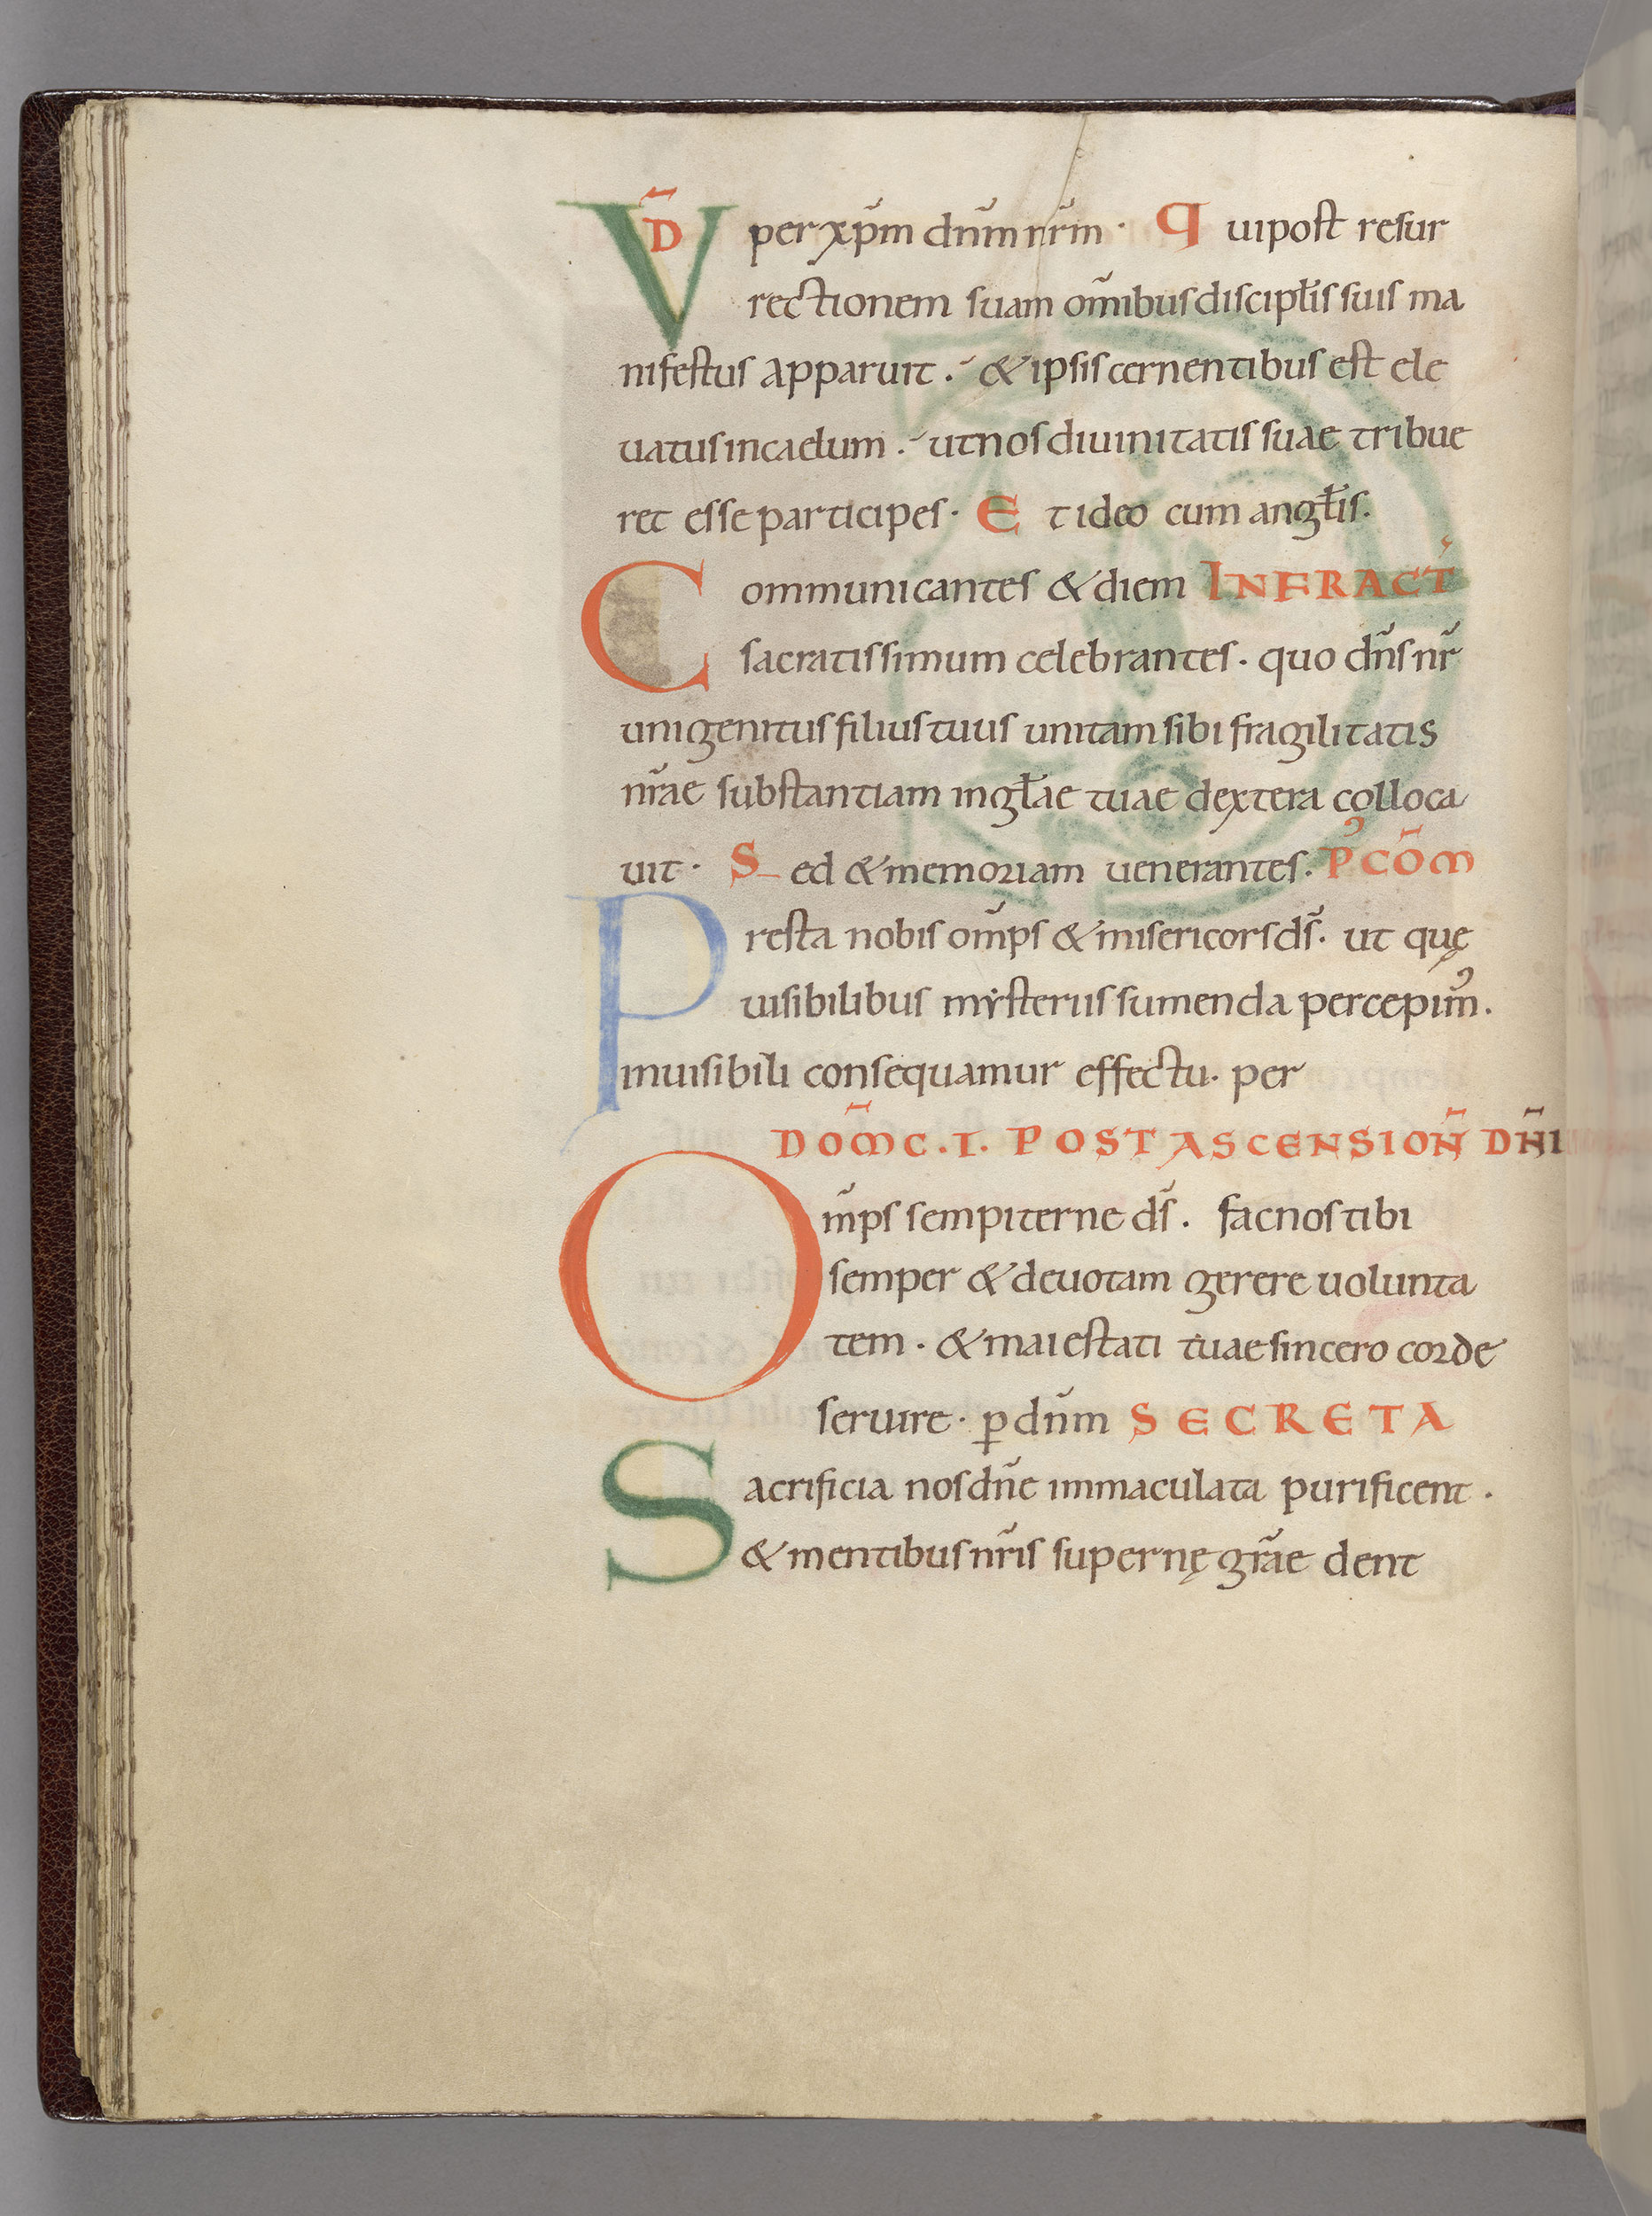 VD̄ per xp̄m dn̄m nr̄m · Qui post resur
rectionem suam om̄ibus discipl̄is suis ma
nifestus apparuit . & ipsis cernentibus est ele
uatus in caelum . ut nos diuinitatis suae tribue
ret esse participes · Et ideo cum angl̄is.
Communicantes & diem INFRACT̄
sacratissimum celebrantes . quo dn̄s nr̄
unigenitus filius tuus unitam sibi fragilitatis
nr̄ae substantiam in gl̄ae tuae dextera colloca
uit · Sed & memoriam uenerantes. PꝰCOM̄
Presta nobis om̄ps & misericors ds̄. ut quę
uisibilibus mẏsteriis sumenda percepim᾽.
inuisibili consequamur effectu. per
DOM̄C.I. POST ASCENSION̄ DN̄I
Om̄ps sempiterne ds̄. fac nos tibi
semper & deuotam gerere uolunta
tem . & maiestati tuae sincero corde
seruire · ꝑ dn̄m SECRETA
Sacrificia nos dn̄e immaculata purificent .
& mentibus nr̄is supernę gr̄ae dent